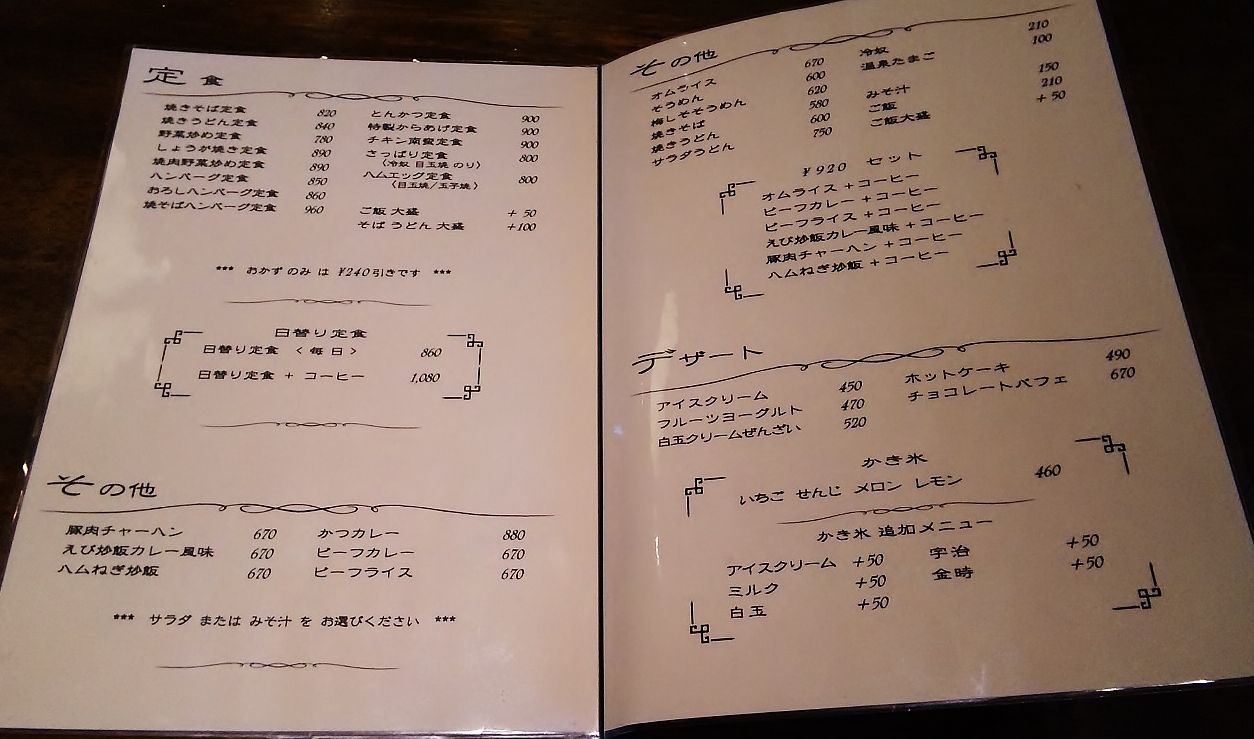 定 食
焼きそば定食 820
焼きうどん定食 840
野菜炒め定食 780
しょうが焼き定食 890
焼肉野菜炒め定食 890
ハンバーグ定食 850
おろしハンバーグ定食 860
焼そばハンバーグ定食 960
とんかつ定食 900
特製からあげ定食 900
チキン南蛮定食 900
さっぱり定食 800
〈冷奴 目玉焼 のり〉
ハムエッグ定食 800
〈目玉焼/玉子焼〉
ご飯 大盛 + 50
そば うどん 大盛 +100
*** おかず のみ は ¥240引きです ***
日替り定食
日替り定食 〈 毎 日 〉 860
日替り定食 + コーヒー 1,080
その他
豚肉チャーハン 670
えび炒飯カレー風味 670
ハムねぎ炒飯 670
かつカレー 880
ビーフカレー 670
ビーフライス 670
*** サラダ または みそ汁 を お選びください ***
その他
オムライス 670
そうめん 600
梅しそそうめん 620
焼きそば 580
焼きうどん 600
サラダうどん 750
冷奴 210
温泉たまご 100
みそ汁 150
ご飯 210
ご飯大盛 + 50
¥920 セット
オムライス + コーヒー
ビーフカレー + コーヒー
ビーフライス + コーヒー
えび炒飯カレー風味 + コーヒー
豚肉チャーハン + コーヒー
ハムねぎ炒飯 + コーヒー
デザート
アイスクリーム 450
フルーツヨーグルト 470
白玉クリームぜんざい 520
ホットケーキ 490
チョコレートパフェ 670
かき氷
いちご せんじ メロン レモン 460
かき氷 追加メニュー
アイスクリーム +50
ミルク +50
白玉 +50
宇治 +50
金時 +50